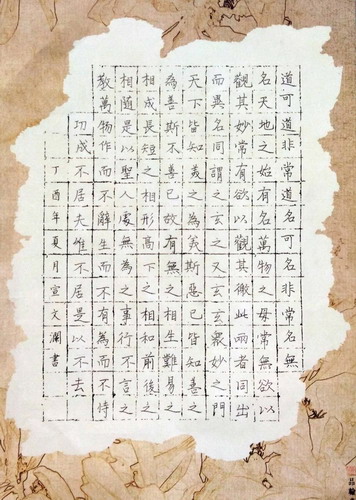 道可道非常道名可名非常名無
名天地之始有名萬物之母常無欲以
觀其妙常有欲以觀其徼此兩者同出
而異名同謂之玄之又玄玄衆妙之門
天下皆知美之為美斯惡已皆知善之
為善斯不善已故有無之相生難易之
相成長短之相形高下之相和前後之
相隨是以聖人處無為之事行不言之
教萬物作而不辭生而不有為而不恃
功成不居夫惟不居是以不去
丁酉年夏月宣文瀾書